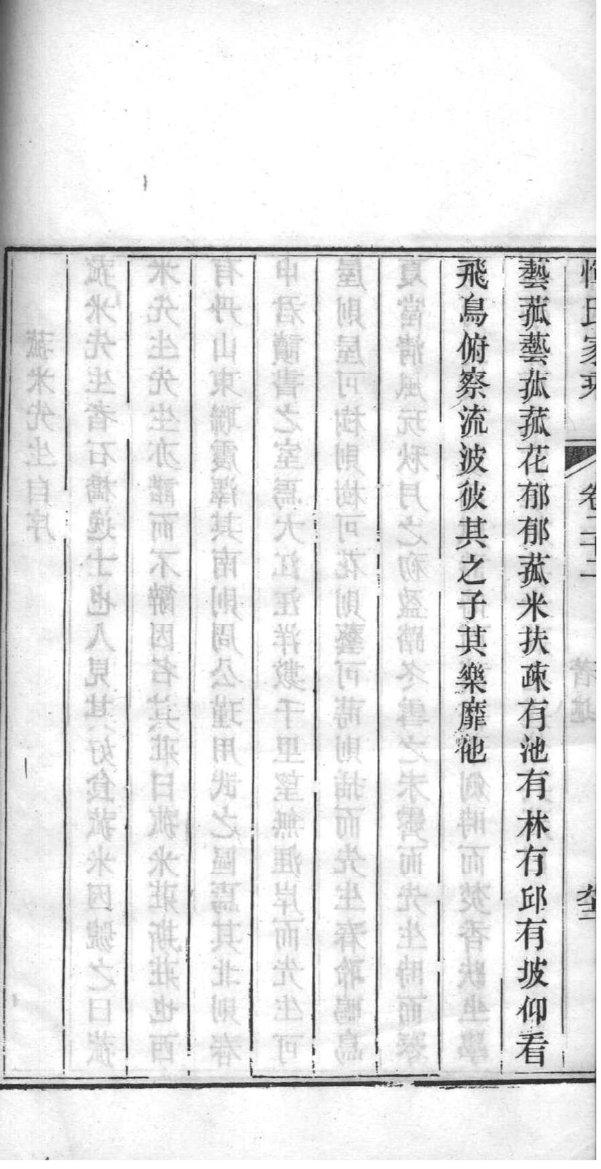 氏家乘 卷二十二
藝菰藝菰菰花郁郁菰米扶疎有池有林有邱有坡仰看
飛鳥俯察流波彼其之子其樂靡他